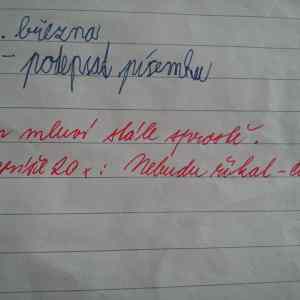 . března
– podepsat písemku
mluví stále sprostě.
20x: Nebudu říkat –